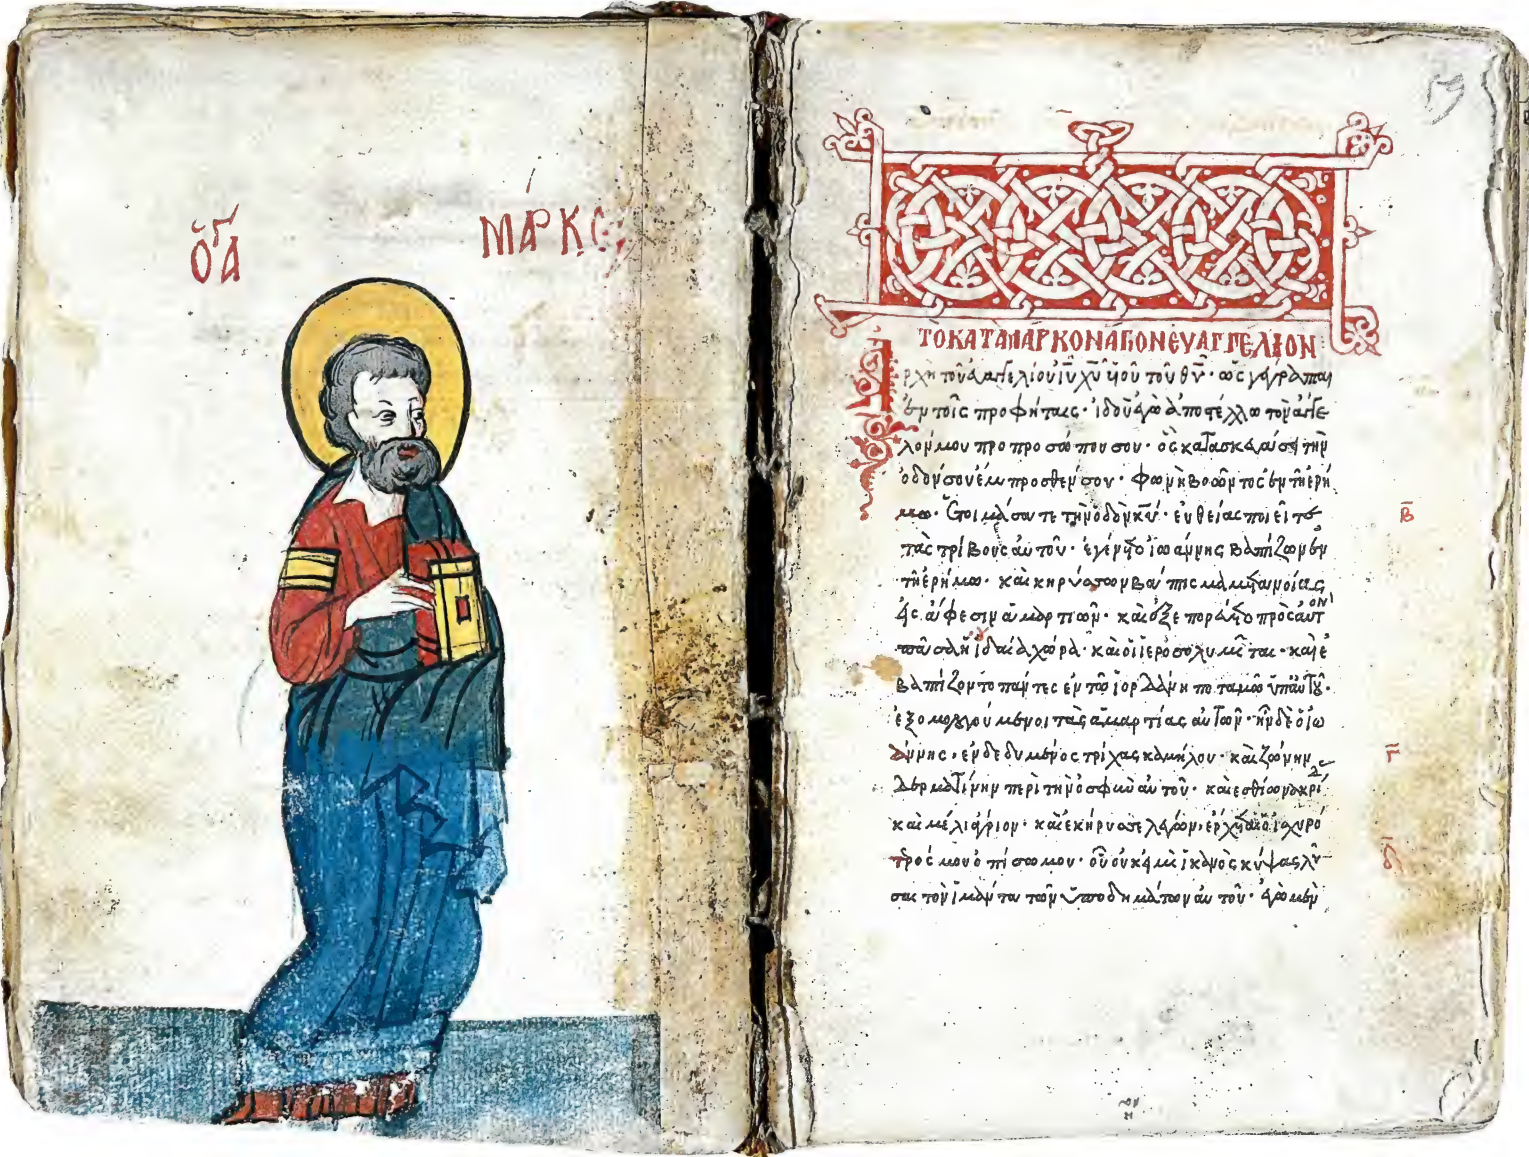 ὁ ἅγ
ΜΑΡΚΟ
59
ΤΟ ΚΑΤΑ ΜΑΡΚΟΝ ΑΓΙΟΝ ΕΥΑΓΓΕΛΙΟΝ
Ἀρχὴ τοῦ εὐαγγελίου ιυ χυ υἱοῦ τοῦ θυ· ὡς γέγραπται
ἐν τοῖς προφήταις· ἰδοὺ ἐγὼ ἀποστέλλω τὸν ἄγγε
λόν μου πρὸ προσώπου σου· ὃς κατασκευάσει τὴν
ὁδόν σου ἔμπροσθέν σου· φωνὴ βοῶντος ἐν τῇ ἐρή
μω· ἑτοιμάσατε τὴν ὁδὸν κυ· εὐθείας ποιεῖτε
β
τὰς τρίβους αὐτοῦ· ἐγένετο ἰωάννης βαπτίζων ἐν
τῇ ἐρήμω· καὶ κηρύσσων βάπτισμα μετανοίας
εἰς ἄφεσιν ἁμαρτιῶν· καὶ ἐξεπορεύετο πρὸς αὐτὸν
πᾶσα ἡ ἰουδαία χώρα· καὶ οἱ ἱεροσολυμῖται· καὶ ἐ
βαπτίζοντο πάντες ἐν τῶ ἰορδάνη ποταμῶ ὑπ' αὐτοῦ·
ἐξομολογούμενοι τὰς ἁμαρτίας αὐτῶν· ἦν δὲ ὁ ἰω
άννης· ἐνδεδυμένος τρίχας καμήλου· καὶ ζώνην
γ
δερματίνην περὶ τὴν ὀσφὺν αὐτοῦ· καὶ ἐσθίων ἀκρί
καὶ μέλι ἄγριον· καὶ ἐκήρυσσε λέγων· ἔρχεται ὁ ἰσχυρό
τερός μου ὀπίσω μου· οὗ οὐκ εἰμὶ ἱκανὸς κύψας λῦ
δ
σαι τὸν ἱμάντα τῶν ὑποδημάτων αὐτοῦ· ἐγὼ μὲν